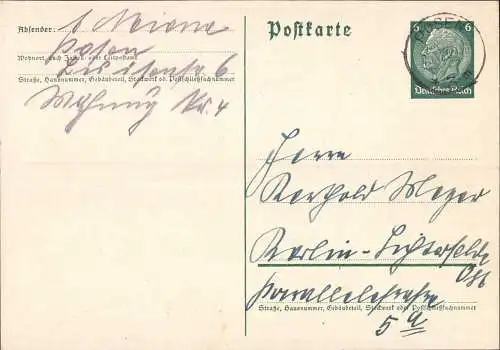 Absender:
Posen
Wohnort, auch Zustell- oder Leitpostamt
6
Straße, Hausnummer, Gebäudeteil, Stockwerk od. Postschließfachnummer
Wohnung Nr. 4
Postkarte
6 6
Deutsches Reich
POSEN
Herrn
Berthold Meyer
Berlin-Lichterfelde
Ost
Parallelstrasse
Straße, Hausnummer, Gebäudeteil, Stockwerk oder Postschließfachnummer
5 a